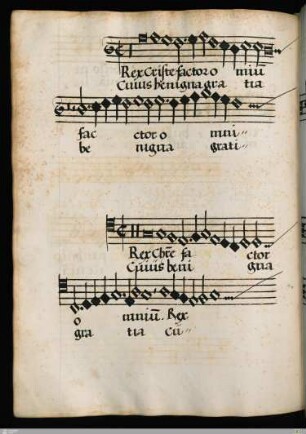 Rex Criste factor o mniū
Cuius benigna gra tia
fac ctor o mniū
be nigna grati
Rex Chr̄e fa ctor
Cuius beni gna
o mniū. Rex
gra tia Cu